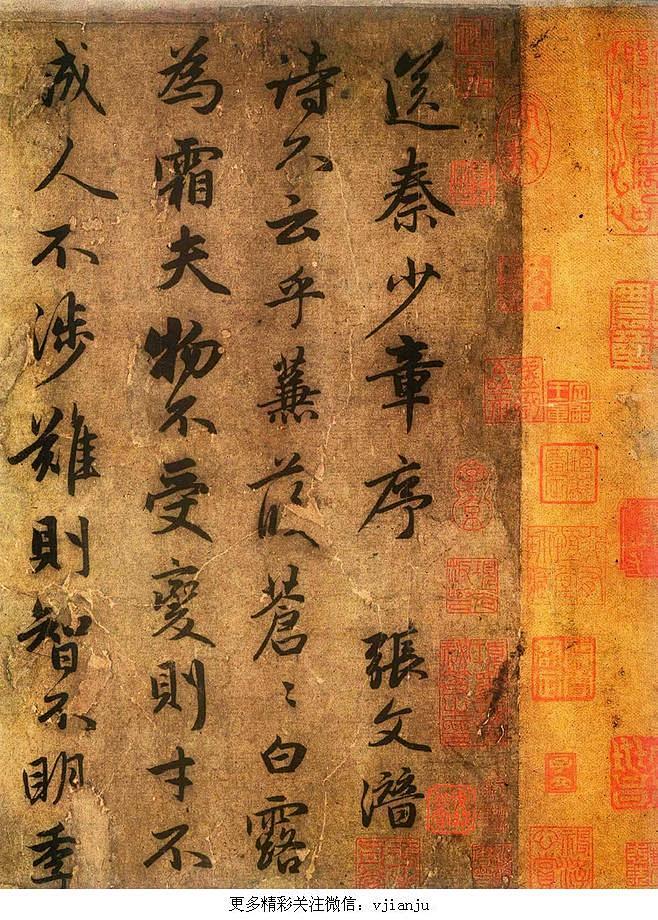 送秦少章序 張文潛
詩不云乎蒹葭蒼〻白露
為霜夫物不受變則才不
成人不涉難則智不明季
更多精彩关注微信：vjianju